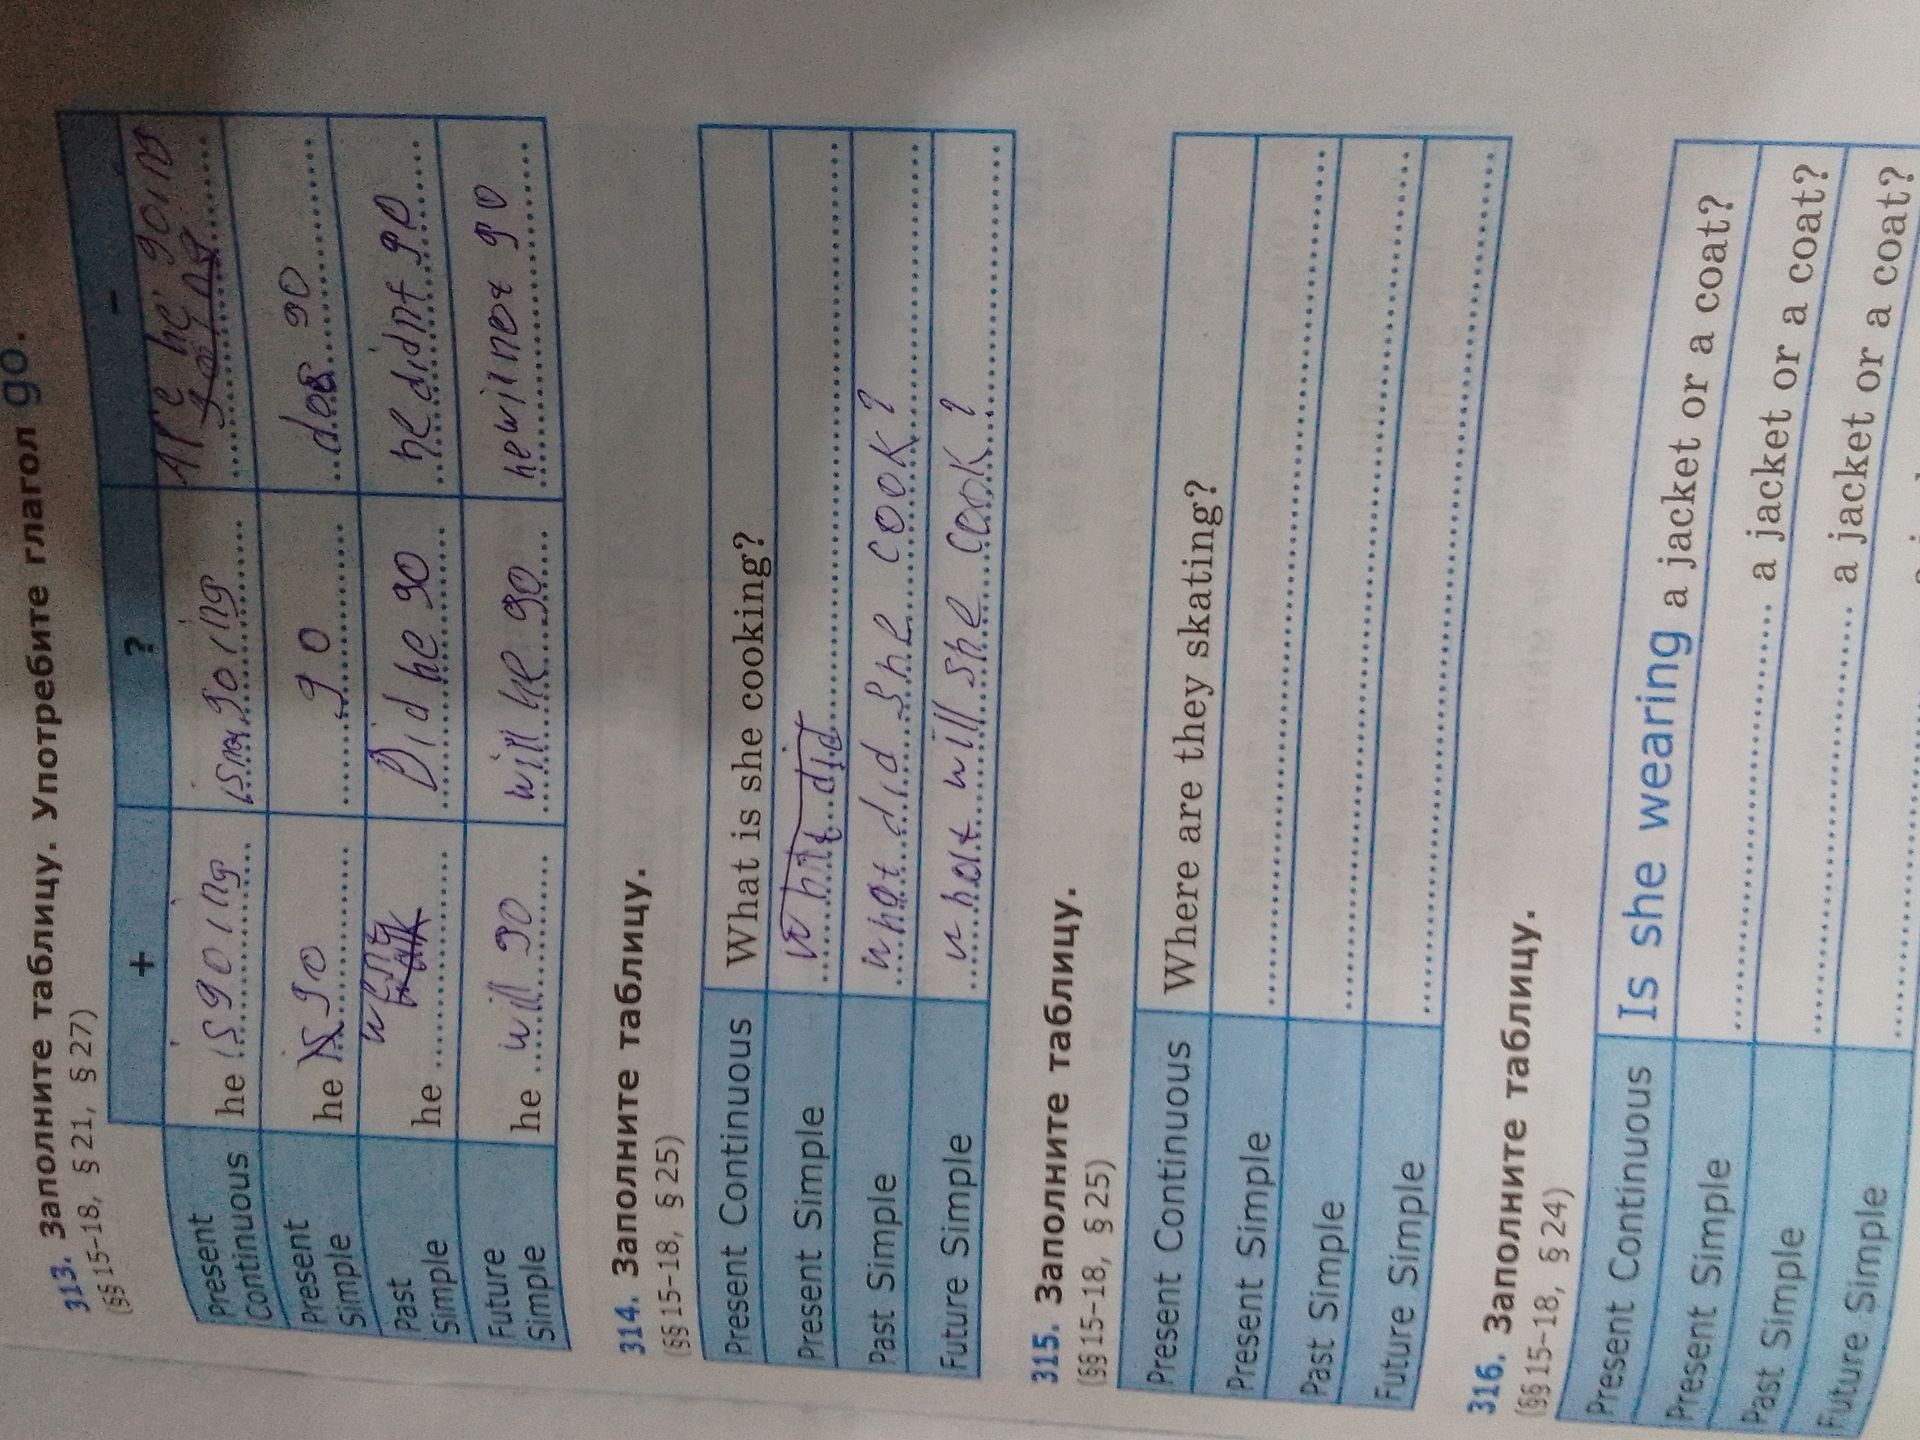 313. Заполните таблицу. Употребите глагол go.
(§§ 15-18, § 21, § 27)
+ ? -
Present Continuous he is going isnot going Are he going
Present Simple he go go does go
Past Simple he went Did he go he didnt go
Future Simple he will go will he go he wil not go
314. Заполните таблицу.
(§§ 15-18, § 25)
Present Continuous What is she cooking?
Present Simple whit did
Past Simple what did she cook?
Future Simple what will she cook?
315. Заполните таблицу.
(§§ 15-18, § 25)
Present Continuous Where are they skating?
Present Simple
Past Simple
Future Simple
316. Заполните таблицу.
(§§ 15-18, § 24)
Present Continuous Is she wearing a jacket or a coat?
Present Simple a jacket or a coat?
Past Simple a jacket or a coat?
Future Simple